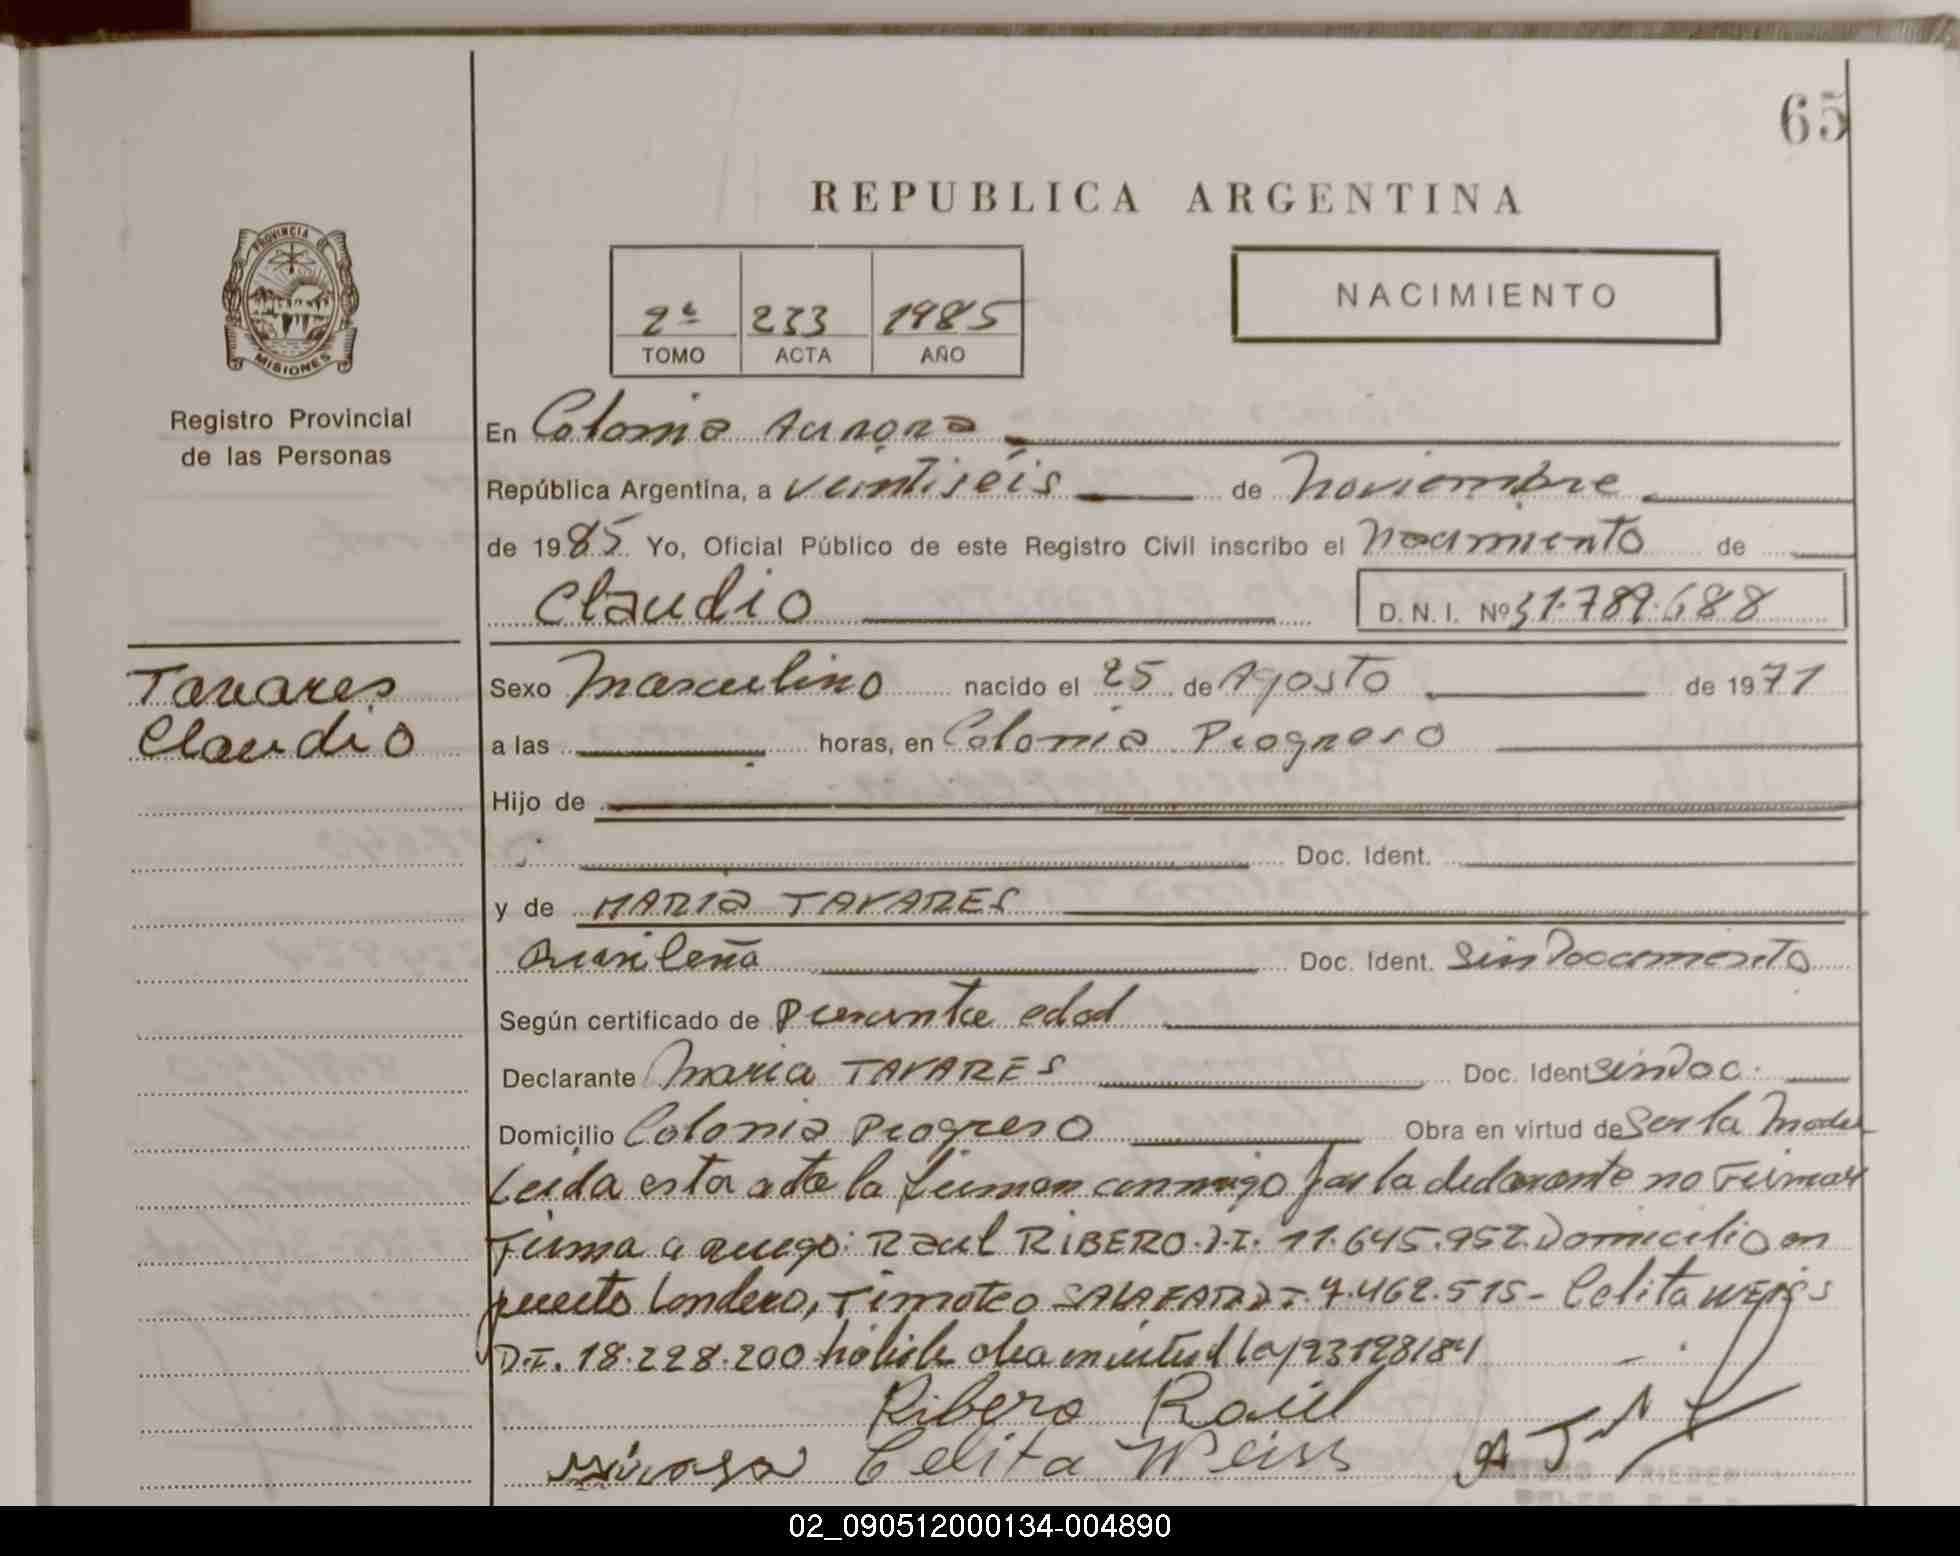 65
REPUBLICA ARGENTINA
PROVINCIA DE
MISIONES
2º 233 1985
TOMO ACTA AÑO
NACIMIENTO
Registro Provincial
de las Personas
En Colonia Aurora
República Argentina, a veintiséis de Noviembre
de 1985 Yo, Oficial Público de este Registro Civil inscribo el Nacimiento de
Claudio D. N. I. Nº 31.789.688
Tavares
Claudio
Sexo Masculino nacido el 25 de Agosto de 1971
a las horas, en Colonia Progreso
Hijo de
Doc. Ident.
y de MARIA TAVARES
Brasileña Doc. Ident. Sin Documento
Según certificado de Presunta edad
Declarante Maria TAVARES Doc. Ident sin Doc.
Domicilio Colonia Progreso Obra en virtud de Ser la Madre
Leida esta acta la firman conmigo por la declarante no Firmar
Firma a ruego: Raul RIBERO D.I. 11.645.952 Domicilio en
puerto Londero, Timoteo D.I. 7.462.515- Celita WEISS
D.I. 18.228.200 hábile obra en virtud ley 23128/84
Ribero Raúl
Celita Weiss
02_090512000134-004890